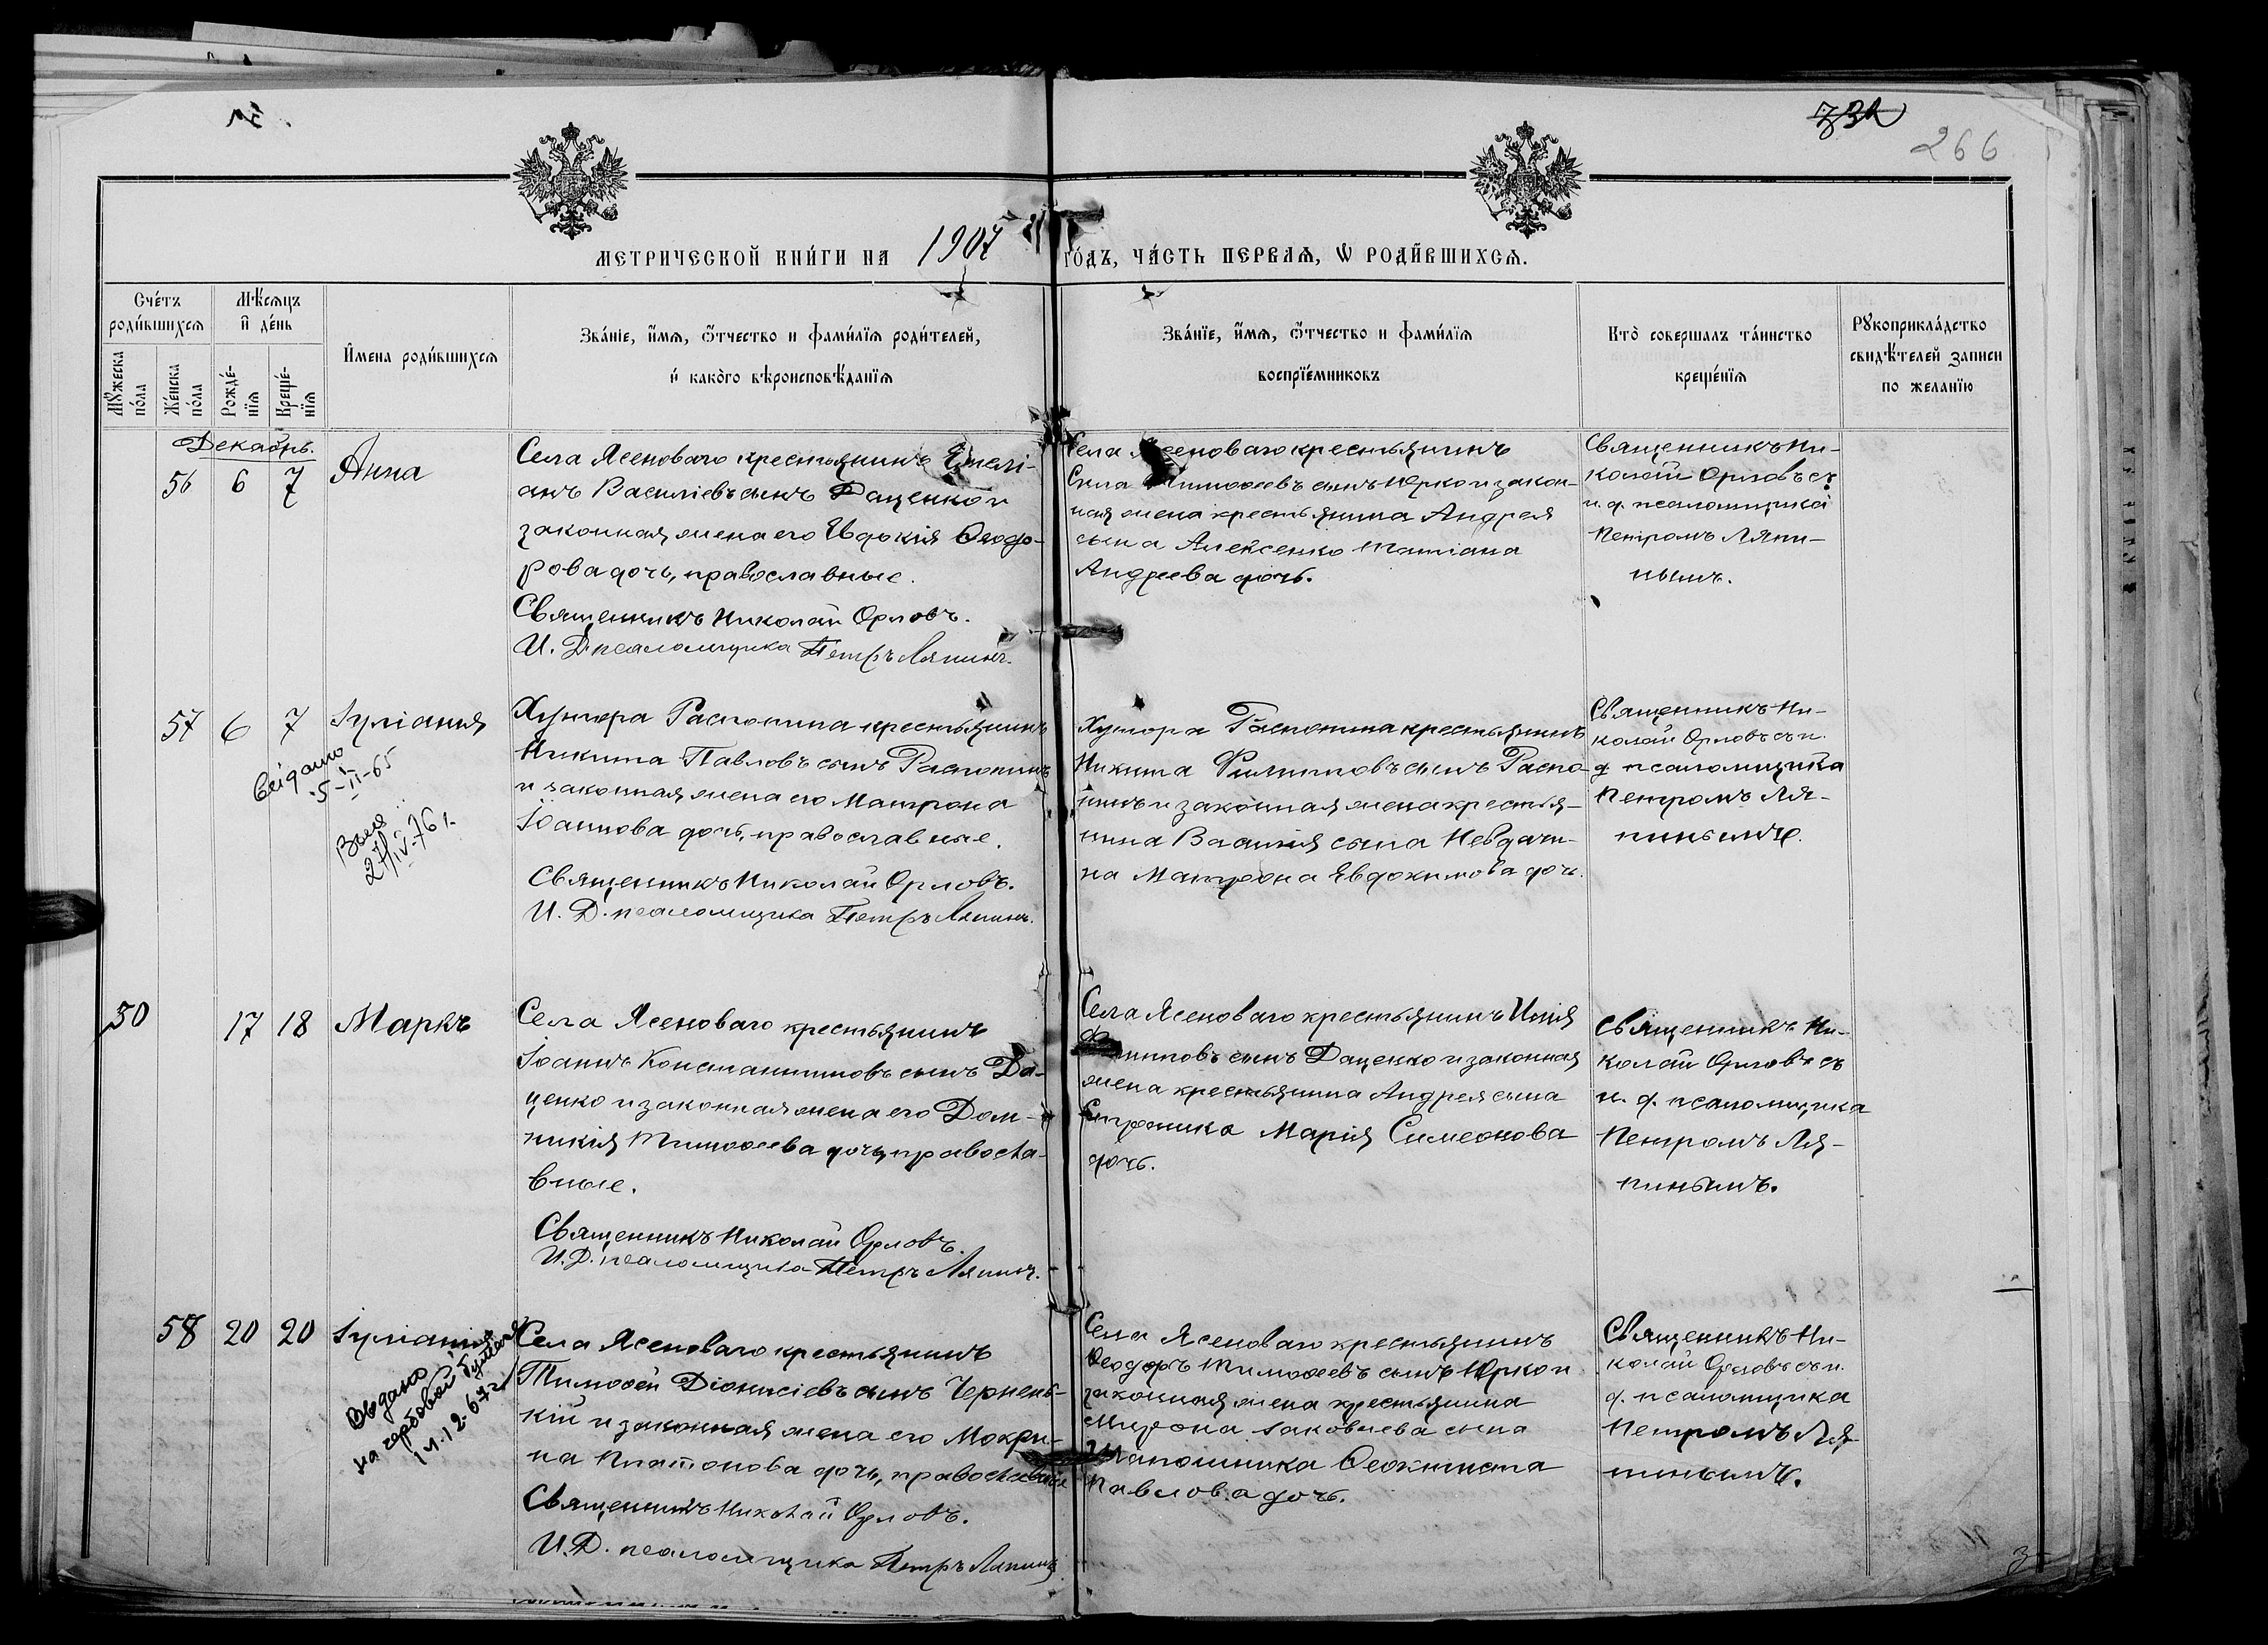 266
МЕТРИЧЕСКОЙ КНИ́ГИ НА 1907 ГО́ДЪ, ЧА́СТЬ ПЕРВАѦ, Ѡ РОДИ́ВШИХСѦ.
Сче́тъ роди́вшихсѧ
Мꙋ́жеска по́ла
Же́нска по́ла
Мѣ́сѧцъ и҆ де́нь
Рожде́-нїѧ
Креще́-нїѧ
И҆мена роди́вшихсѧ
Зва́нїе, и҆́мѧ, ѻ҆́тчество и фами́лїѧ роди́телей,
и҆ како́го вѣроисповѣ́данїѧ
Зва́нїе, и҆́мѧ, ѻ҆́тчество и фами́лїѧ
воспрїе́мниковъ
Кто̀ совершалъ та́инство
креще́нїѧ
Рꙋкоприкла́дство
свидѣ́телей записи
по желанїю
Декабрь.
56 6 7 Анна
Села Ясеноваго крестьянинъ Емелі-
анъ Василіевъ сынъ Даценко и
законная жена его Евдокія Ѳеодо-
рова дочь, православные.
Священникъ Николай Орловъ.
И. Д. псаломщика Петръ Ляпинъ.
Села Ясеноваго крестьянинъ
Сила Тимоѳеевъ сынъ Юрко и закон-
ная жена крестьянина Андрея
сына Алексенко Татіана
Андреева дочь.
Священникъ Ни-
колай Орловъ съ
и. д. псаломщика
Петромъ Ляпи-
нымъ.
57 6 7 Іуліанія
5-II-65
27/IV-76 г.
Хутора Распопина крестьянинъ
Никита Павловъ сынъ Распопинъ
и законная жена его Матрона
Іоаннова дочь, православные.
Священникъ Николай Орловъ.
И. Д. псаломщика Петръ Ляпинъ.
Хутора Распопина крестьянинъ
Никита Филипповъ сынъ Распо-
пинъ и законная жена крестья-
нина Василія сына Невдачи-
на Матрона Евдокимова дочь.
Священникъ Ни-
колай Орловъ съ и.
д. псаломщика
Петромъ Ля-
пинымъ.
30 17 18 Маркъ
Села Ясеноваго крестьянинъ
Іоаннъ Константиновъ сынъ Да-
ценко и законная жена его Дом-
никія Тимоѳеева дочь, правосла-
вные.
Священникъ Николай Орловъ.
И. Д. псаломщика Петръ Ляпинъ.
Села Ясеноваго крестьянинъ Илія
Филипповъ сынъ Даценко и законная
жена крестьянина Андрея сына
Марія Симеонова
дочь.
Священникъ Ни-
колай Орловъ съ
и. д. псаломщика
Петромъ Ля-
пинымъ.
58 20 20 Іуліанія
Выдано
на гербовой бумаге
Села Ясеноваго крестьянинъ
Тимоѳей Діонисіевъ сынъ Чернень-
кій и законная жена его Мокри-
на Платонова дочь, православные
Священникъ Николай Орловъ.
И. Д. псаломщика Петръ Ляпинъ
Села Ясеноваго крестьянинъ
Ѳеодоръ Тимоѳеевъ сынъ Юрко и
законная жена крестьянина
Мирона Іаковлева сына
Шапошника Ѳеоктиста
Павлова дочь.
Священникъ Ни-
колай Орловъ съ и.
д. псаломщика
Петромъ Ля-
пинымъ.